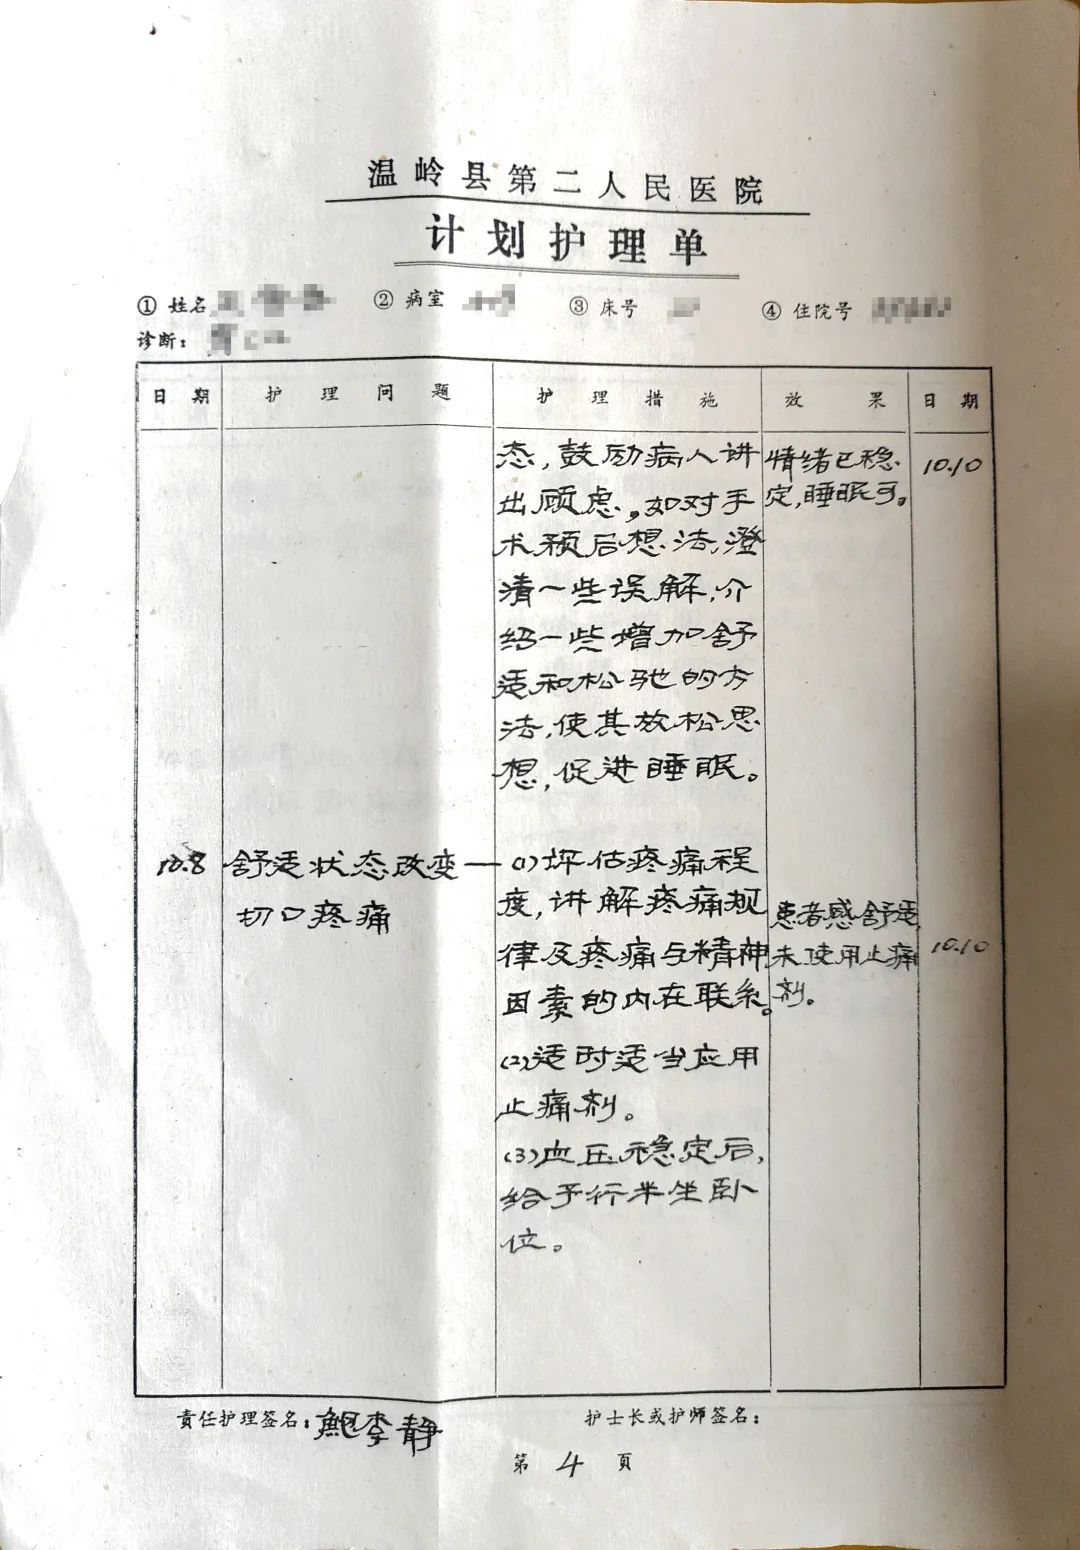 温岭县第二人民医院
计划护理单
① 姓名 ② 病室 ③ 床号 ④ 住院号
诊断：
日期 护理问题 护理措施 效果 日期
态，鼓励病人讲
出顾虑。如对手
术预后想法，澄
清一些误解，介
绍一些增加舒
适和松驰的方
法，使其放松思
想，促进睡眠。
情绪已稳
定，睡眠可。
10.10
10.8
舒适状态改变—
切口疼痛
(1)评估疼痛程
度，讲解疼痛规
律及疼痛与精神
因素的内在联系。
(2)适时适当应用
止痛剂。
(3)血压稳定后，
给予行半坐卧
位。
患者感舒适，
未使用止痛
剂。
10.10
責任护理签名：鲍李静
护士长或护师签名：
第 4 頁